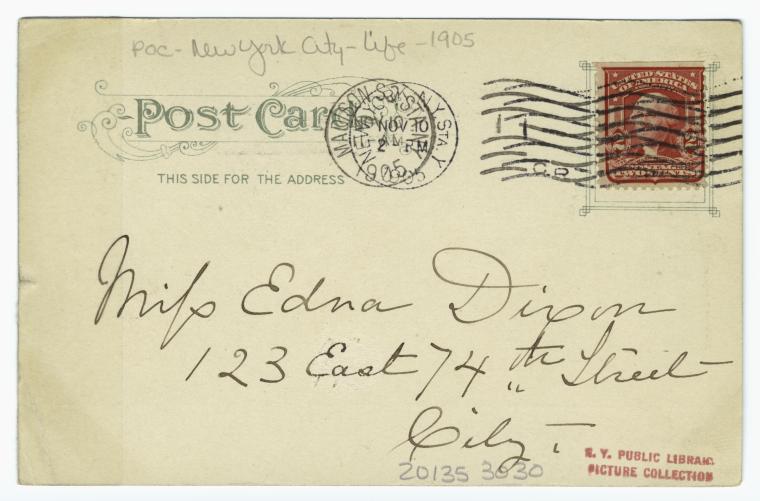 POC - New York City - Life - 1905
POST CARD
THIS SIDE FOR THE ADDRESS
MADISON SQ. STA. N.Y.
NOV 10
2 PM
1905
UNITED STATES
OF AMERICA
TWO CENTS
Miss Edna Dixon
123 East 74th Street
City -
20135 3030
N. Y. PUBLIC LIBRARY
PICTURE COLLECTION